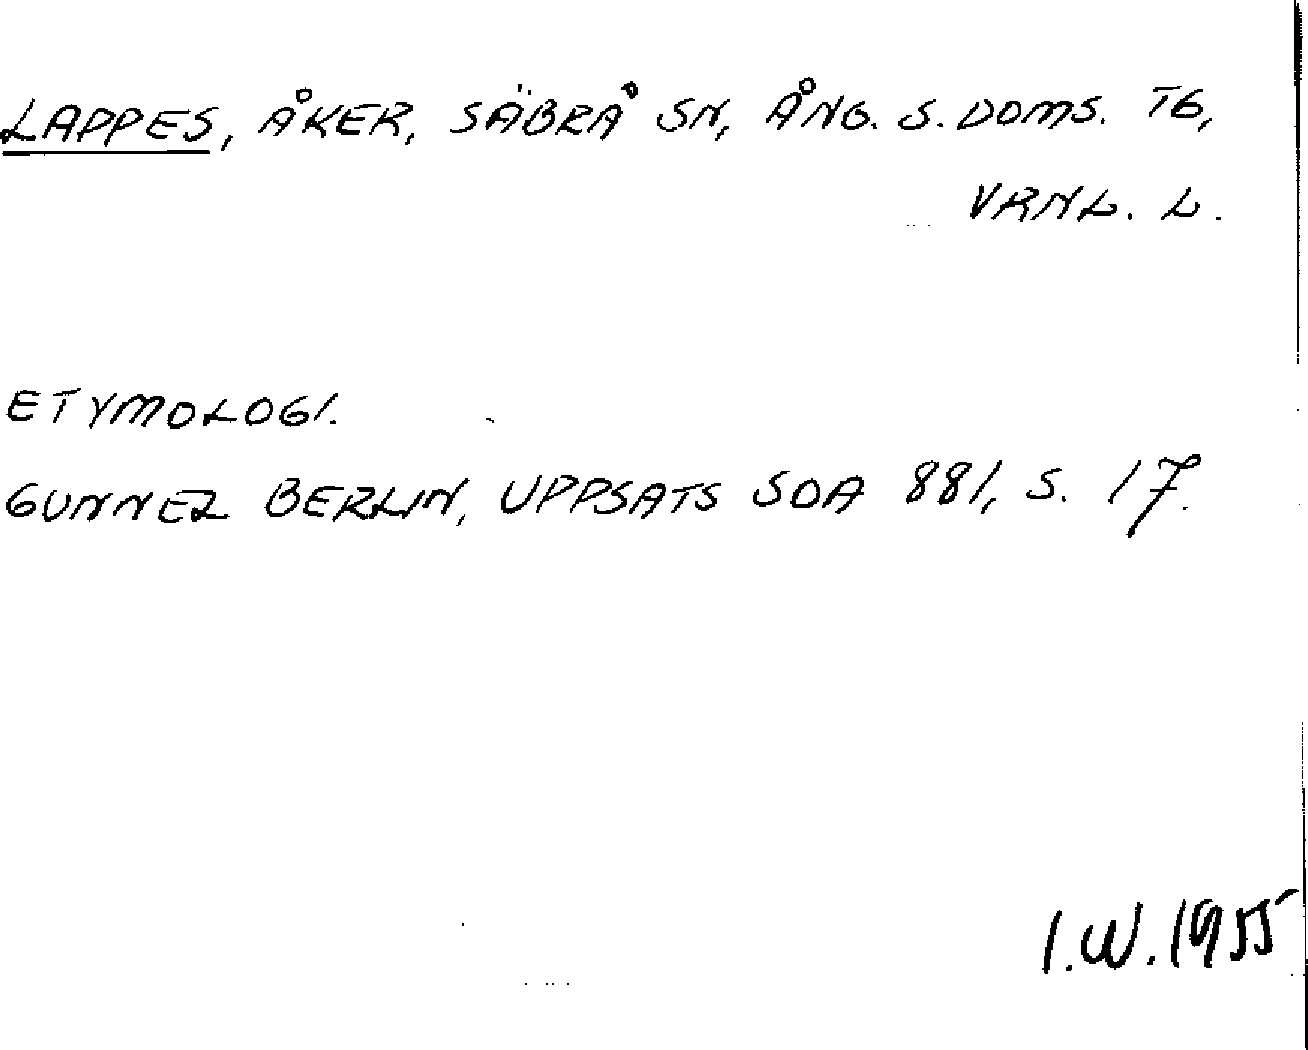 LAPPES, ÅKER, SÄBRÅ SN, ÅNG. S. DOMS. TG,
VRNL. L.
ETYMOLOGI.
GUNNEL BERLIN, UPPSATS SOA 881, S. 17.
I.W. 1955